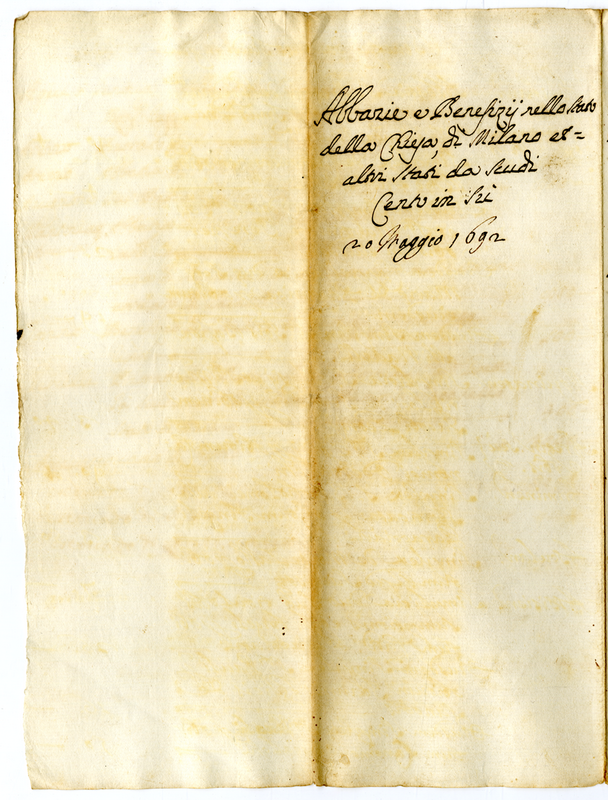 Abbazie e Benefizij nello stato
della Chiesa, di Milano et=
altri stati da scudi
Cento in sù
20 Maggio 1692